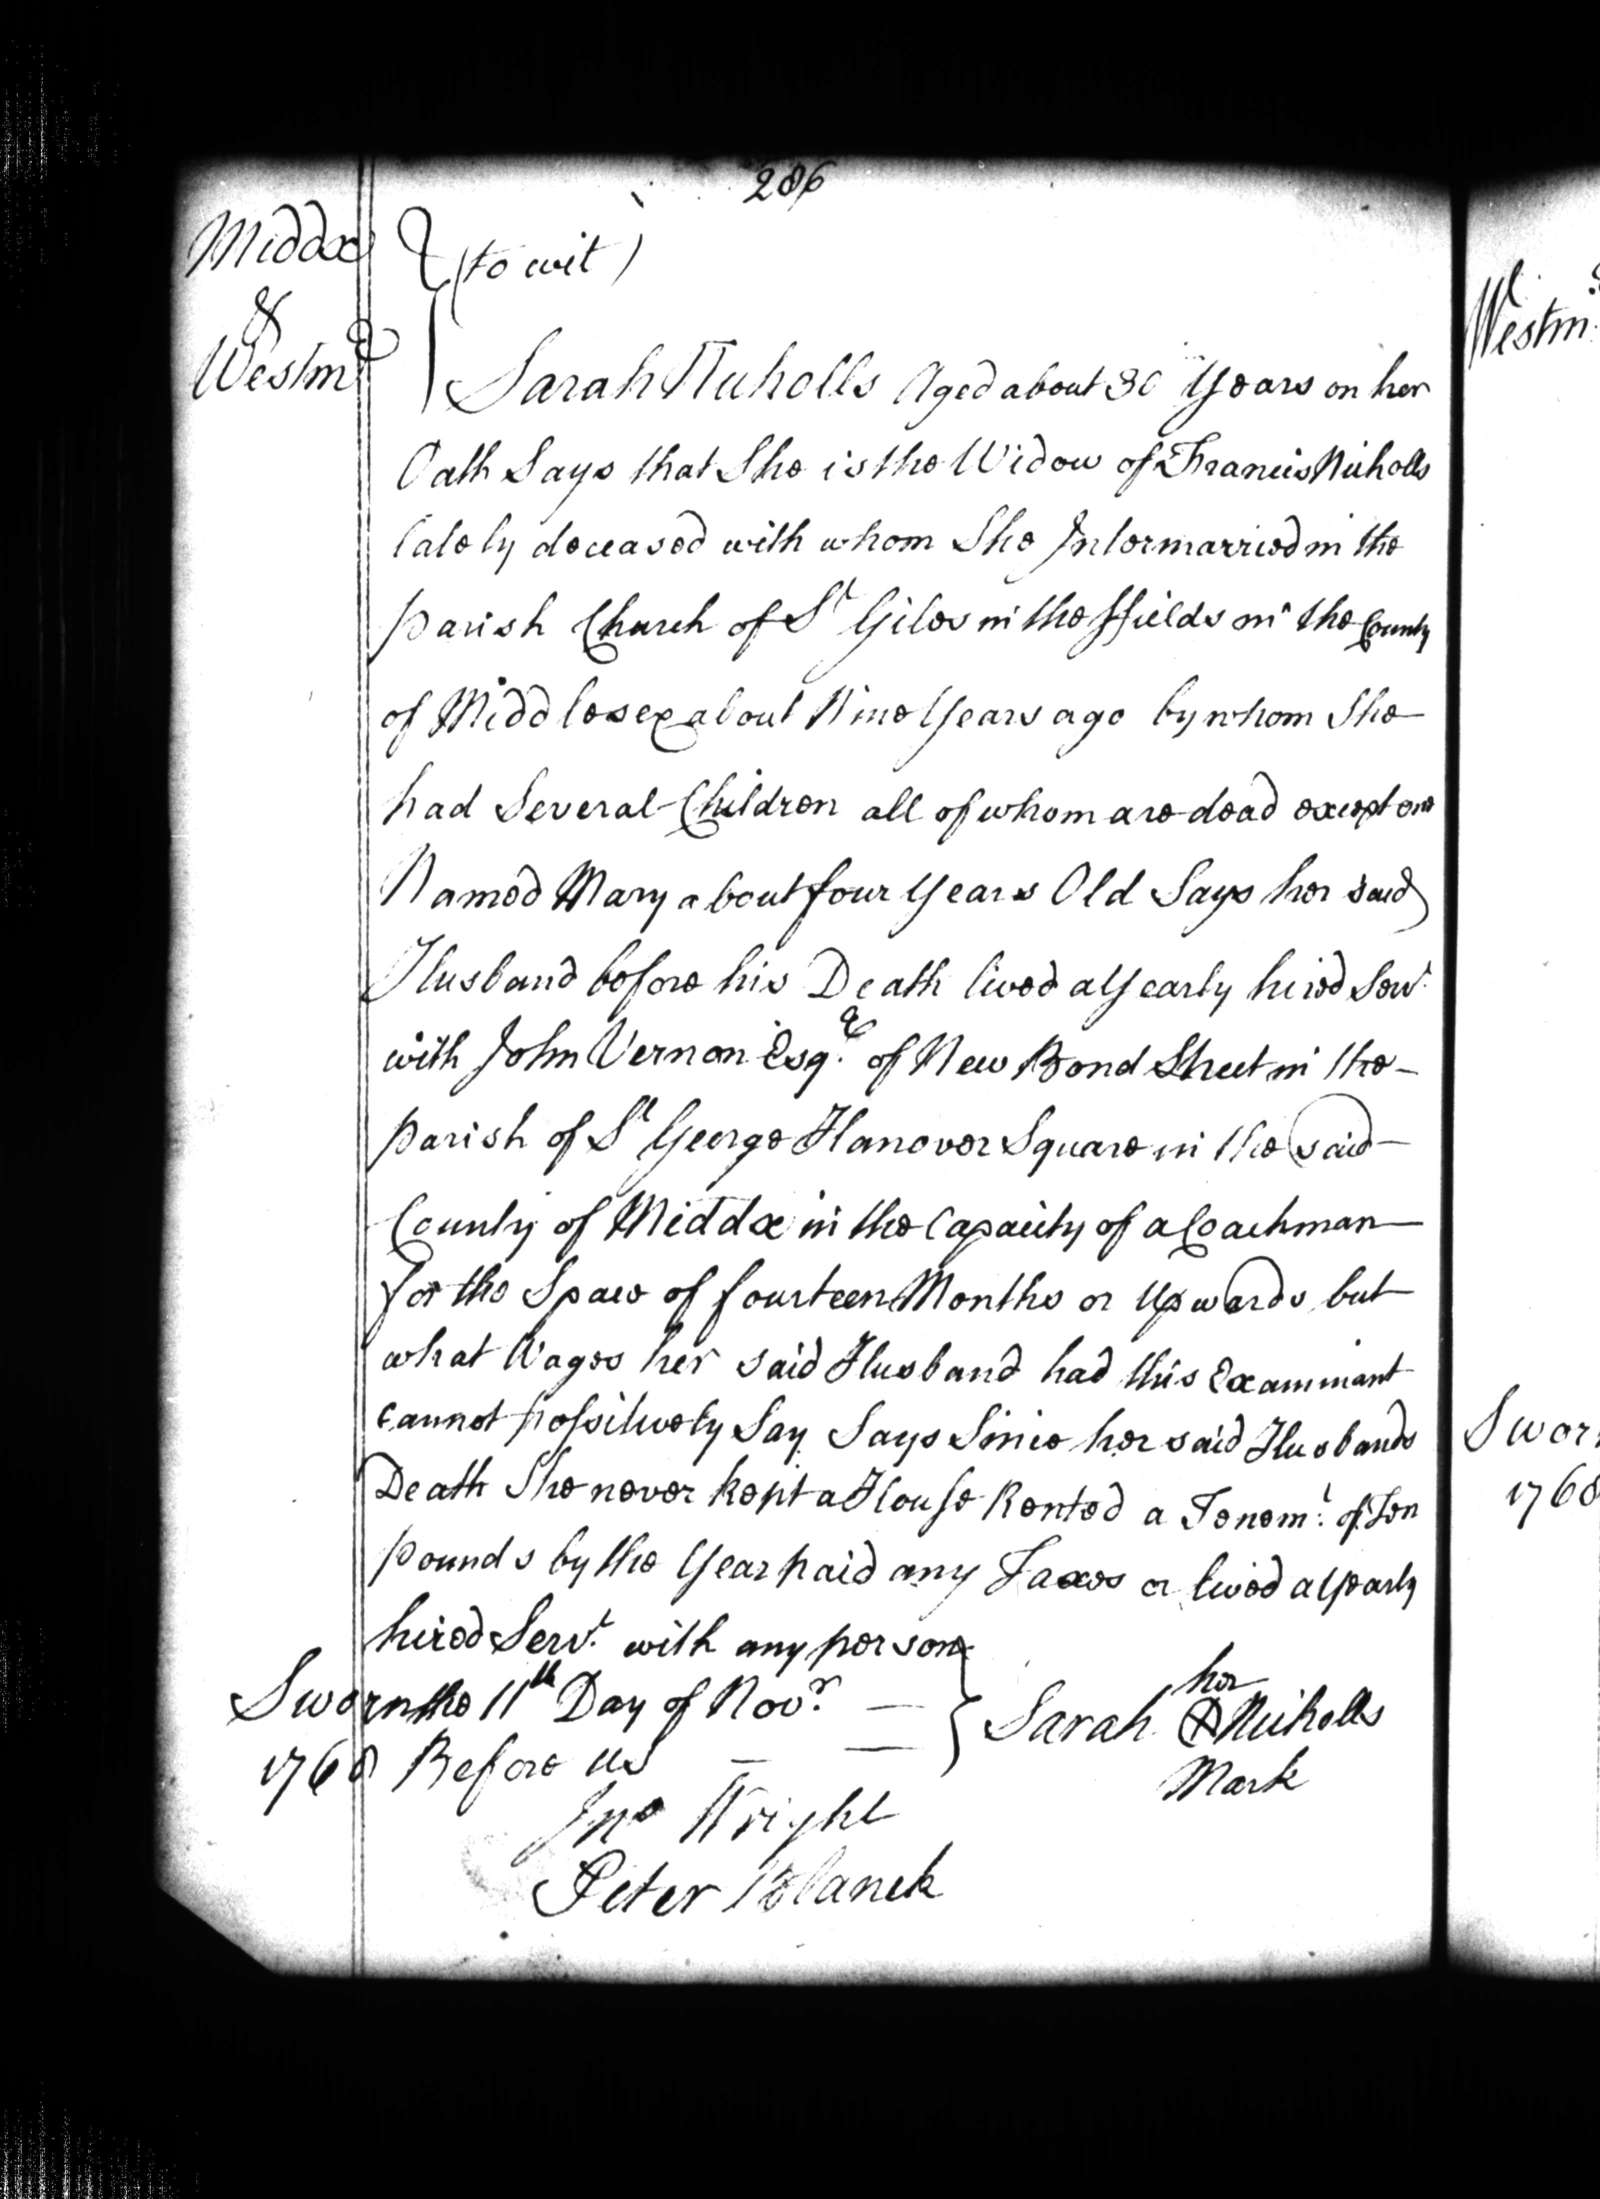 286
Middx } (to wit)
&
Westmr
Sarah Nicholls Aged about 30 Years on her
Oath Says that She is the Widow of Francis Nicholls
lately deceased with whom She Intermarried in the
parish Church of St Giles in the ffields in the County
of Middlesex about Nine Years ago by whom She
had Several Children all of whom are dead except one
Named Mary about four Years Old Says her said
Husband before his Death lived a Yearly hired Servt
with John Vernon Esqr of New Bond Street in the
parish of St George Hanover Square in the said
County of Middx in the Capacity of a Coachman
for the Space of fourteen Months or Upwards but
what Wages her said Husband had this Examinant
cannot possitively Say Says Since her said Husbands
Death She never kept a House Rented a Tenemt. of Ten
pounds by the Year paid any Taxes or lived a Yearly
hired Servt. with any person
Sworn the 11th Day of Novr
1768 Before us
her
Sarah X Nicholls
Mark
Jno Wright
Peter Planck
Westm
Sworn
1768